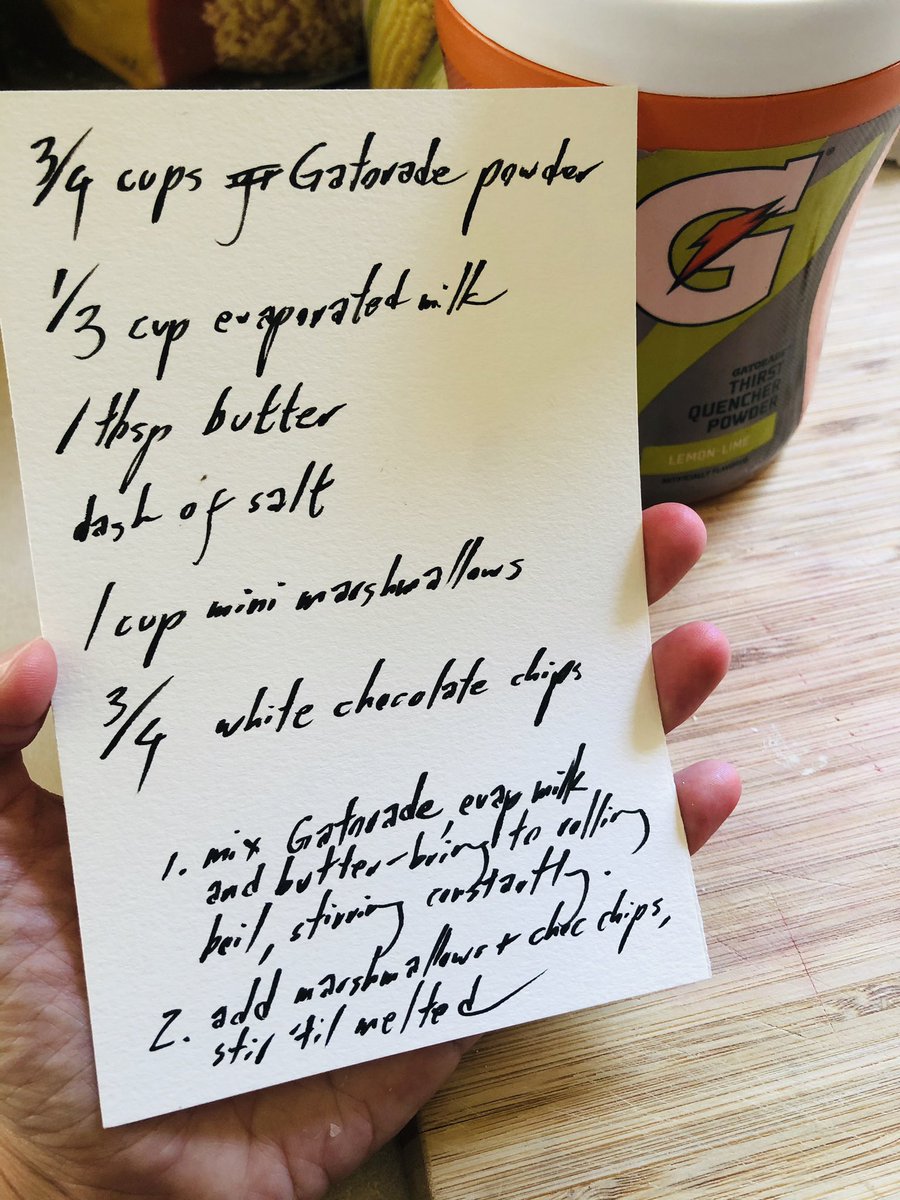 3/4 cups Gatorade powder
1/3 cup evaporated milk
1 tbsp butter
dash of salt
1 cup mini marshmallows
3/4 white chocolate chips
1. mix Gatorade, evap milk
and butter - bring to rolling
boil, stirring constantly.
2. add marshmallows + choc chips,
stir 'til melted
G
GATORADE
THIRST
QUENCHER
POWDER
LEMON-LIME
ARTIFICIALLY FLAVORED